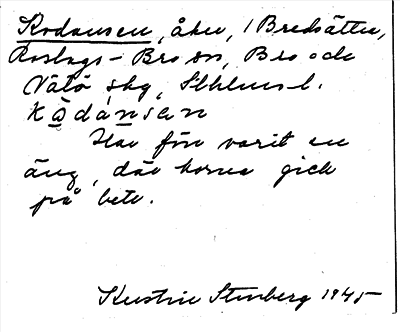 Kodansen, åker, i Bredsätter,
Roslags-Bro sn, Bro och
Vätö skg, Sthlms l.
kødánsan
Har förr varit en
äng, där korna gick
på bete.
Kerstin Stenberg 1945